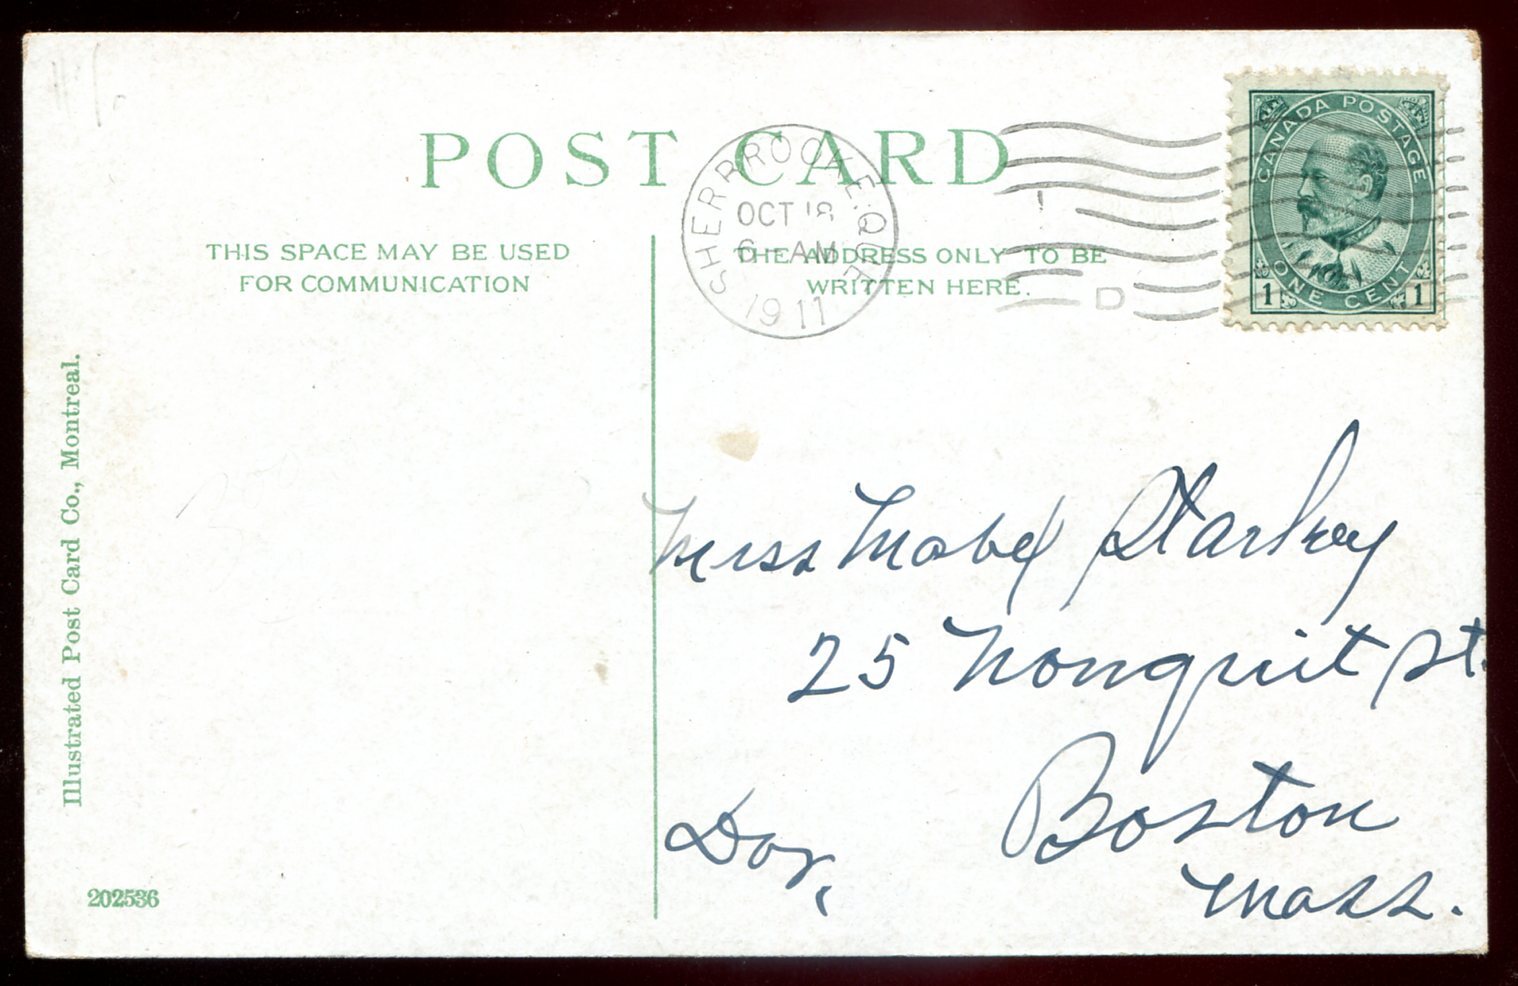 POST CARD
THIS SPACE MAY BE USED
FOR COMMUNICATION
THE ADDRESS ONLY TO BE
WRITTEN HERE.
SHERBROOKE. QUE
OCT 18
6-AM
1911
D
CANADA POSTAGE
ONE CENT
1 1
Miss Mabel Starkey
25 Nonquit St.
Boston
Dor,
Mass.
Illustrated Post Card Co., Montreal.
202536